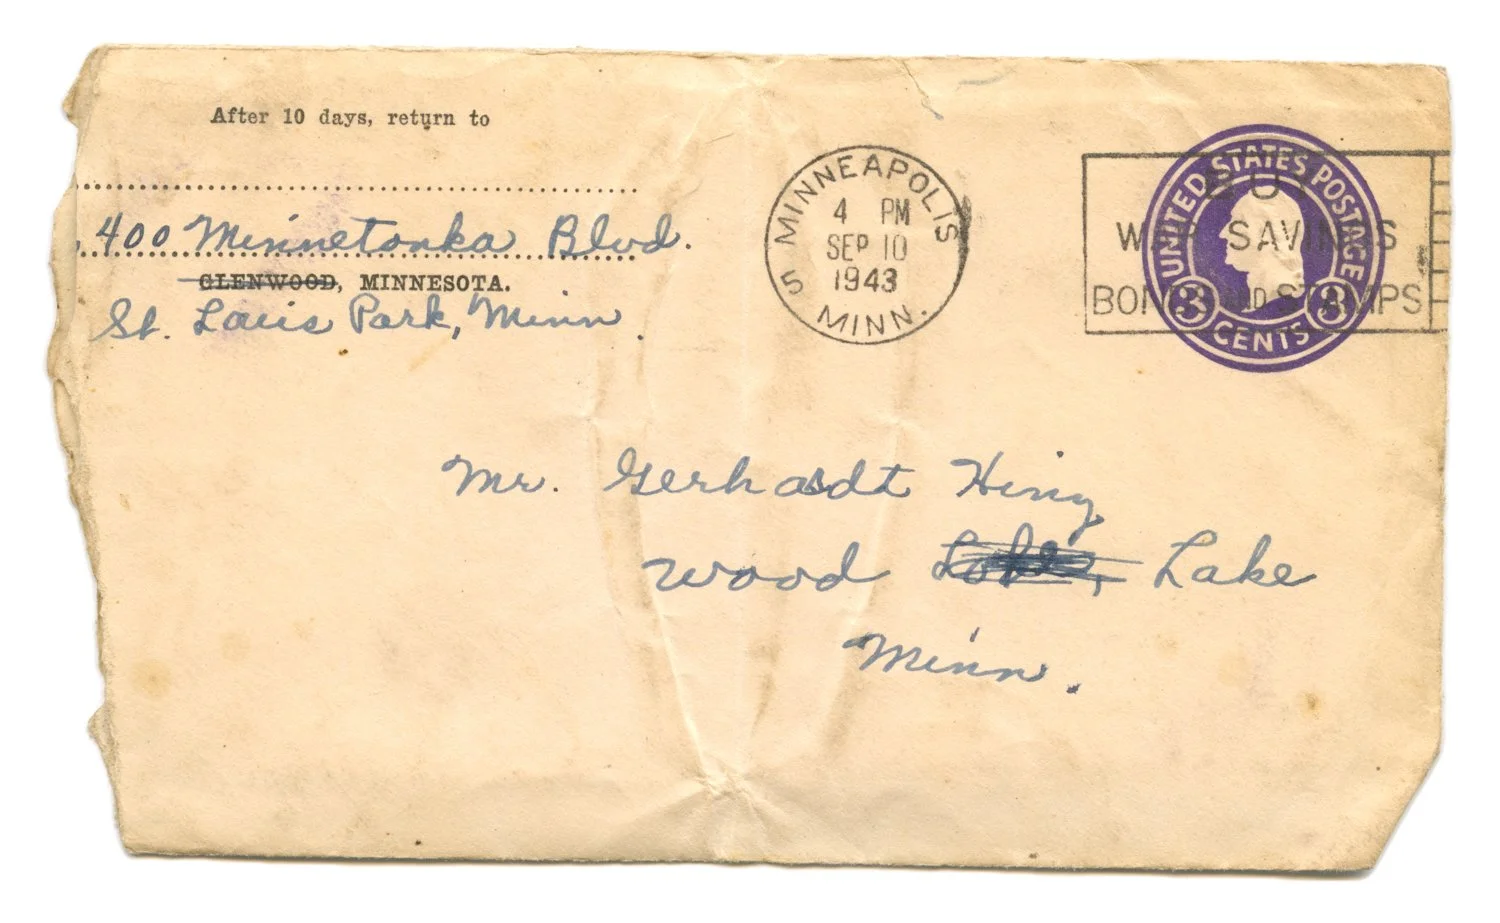 After 10 days, return to
400 Minnetonka Blvd.
GLENWOOD, MINNESOTA.
St. Louis Park, Minn.
MINNEAPOLIS
4 PM
SEP 10
1943
5 MINN.
BUY
WAR SAVINGS
BONDS AND STAMPS
UNITED STATES POSTAGE
3 CENTS 3
Mr. Gerhardt Hing
Wood Lake
Minn.